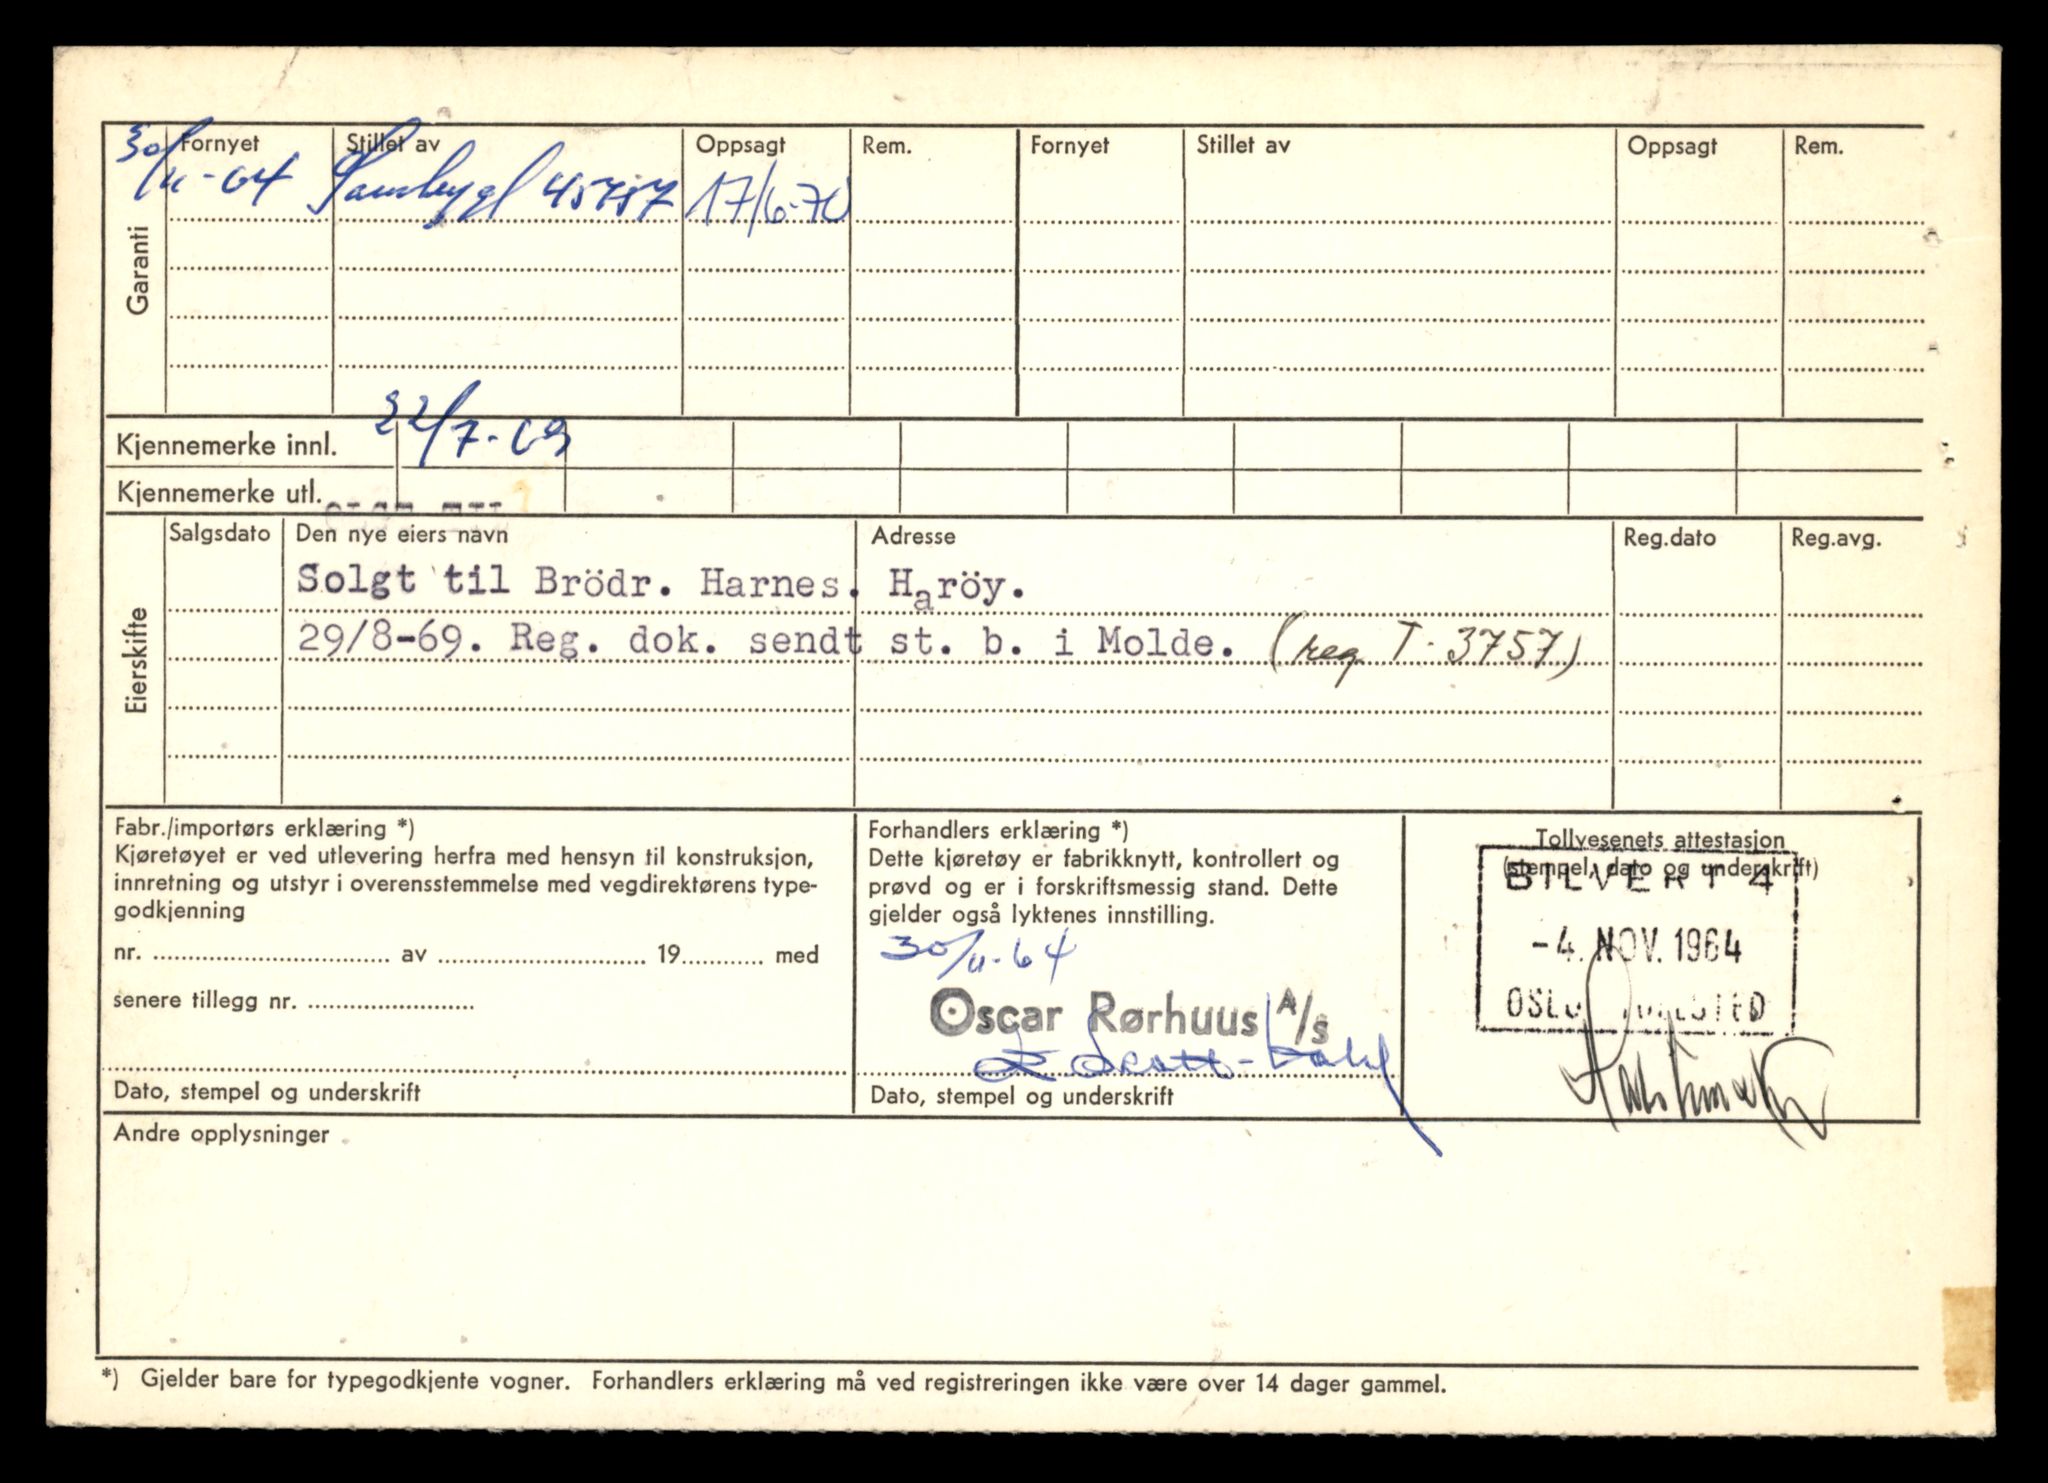 Garanti
Fornyet Stillet av Oppsagt Rem. Fornyet Stillet av Oppsagt Rem.
30/11-64 Samtrygd 45757 17/6-70
Kjennemerke innl. 22/7-69
Kjennemerke utl.
Eierskifte
Salgsdato Den nye eiers navn Adresse Reg.dato Reg.avg.
Solgt til Brödr. Harnes. Haröy.
29/8-69. Reg. dok. sendt st. b. i Molde. (reg. T-3757)
Fabr./importørs erklæring *)
Kjøretøyet er ved utlevering herfra med hensyn til konstruksjon,
innretning og utstyr i overensstemmelse med vegdirektørens type-
godkjenning
nr. av 19 med
senere tillegg nr.
Dato, stempel og underskrift
Forhandlers erklæring *)
Dette kjøretøy er fabrikknytt, kontrollert og
prøvd og er i forskriftsmessig stand. Dette
gjelder også lyktenes innstilling.
30/11-64
Oscar Rørhuus A/s
Dato, stempel og underskrift
Tollvesenets attestasjon
(stempel, dato og underskrift)
BILVERT 4
-4. NOV. 1964
OSLO TOLLSTED
Andre opplysninger
*) Gjelder bare for typegodkjente vogner. Forhandlers erklæring må ved registreringen ikke være over 14 dager gammel.